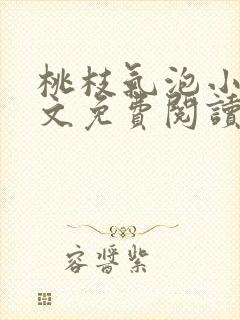 桃枝氣泡小
文免費閱讀
容醬紫